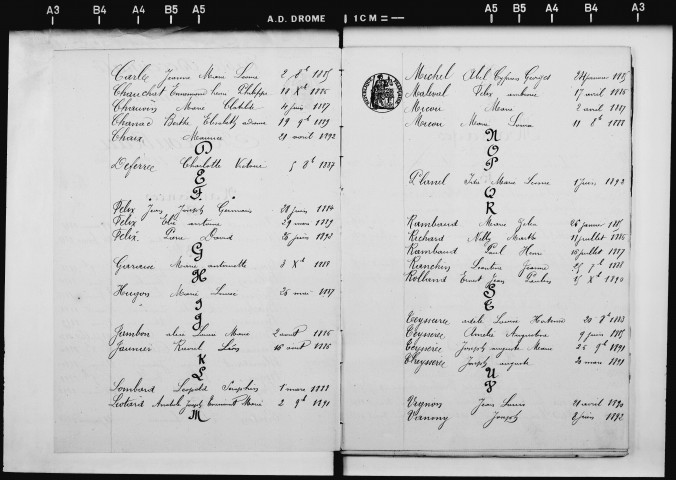 A3 B4 A4 B5 A5 A.D. DROME 1 CM = A5 B5 A4 B4 A3
Carle Jeanne Marie Louise 2 8bre 1885
Chauchet Emmanuel Henri Philippe 18 Xbre 1885
Chauvin Marie Clotilde 4 juin 1887
Chanac Berthe Elisabeth 19 9bre 1889
Chaix Maurice 21 avril 1892
D
Deferre Charlotte Victorie 5 8bre 1887
E
F
Félix Jean Joseph Germain 28 juin 1884
Félix Elie antoine 29 mai 1889
Félix Pierre David 25 juin 1892
G
Marie antoinette 3 Xbre 1888
H
Hugon Marie Louise 25 mai 1887
I
J
Jambon alice Laure Marie 2 août 1886
16 août 1886
K
L
Lombard Léopold 1 mars 1888
Liotard Joseph Marie 2 9bre 1891
M
Michel Abel Cyprien Georges 24 janvier 1885
Malaval Félix antoine 17 avril 1886
Micou Marie 2 avril 1887
Micou Marie Louise 11 8bre 1888
N
O
P
Planel Marie Louise 1 juin 1892
Q
R
Rambaud Marie 26 janvier 1885
Richard Nelly Marthe 11 juillet 1886
Rambaud Paul Henri 16 juillet 1887
Jeanne 1888
Rolland Ernest Jean Xbre 1890
S
T
Teysseire adèle Louise 20 8bre 1883
Teysseire Amélie Augustine 9 juin 1885
Teysseire Joseph auguste Marie 26 9bre 1891
Theysseire Joseph auguste 2 mai 1891
U
V
Vignon Jean Louis 21 avril 1890
Joseph 2 juin 1892